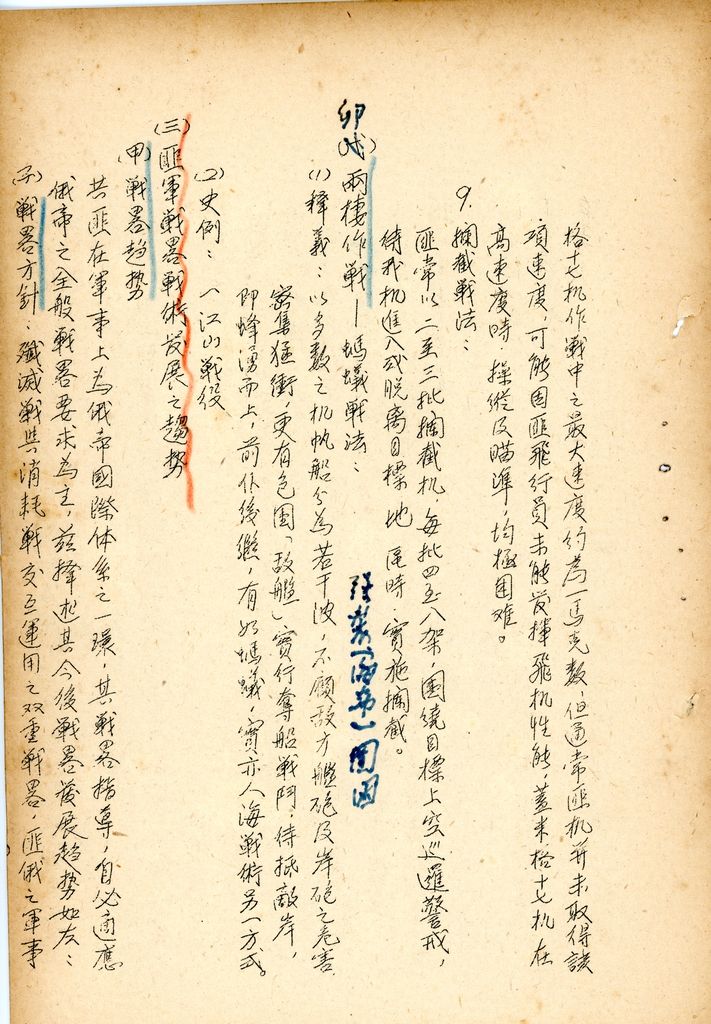 格十七机作戰中之最大速度約為一馬克數，但通常匪机并未取得該
項速度，可能因匪飛行員未能發揮飛机性能，蓋米格十七机在
高速度時，操縱及瞄準，均極困难。
9.攔截戰法：
匪常以二至三批攔截机，每批四至八架，圍繞目標上空巡邏警戒，
待我机進入或脱离目標地區時，實施攔截。
卯(戊)兩棲作戰—螞蟻戰法：
(1)釋義：以多數之机帆船分為若干波，不顧敵方艦砲及岸砲之危害
密集猛衝，更有包圍「敌艦」實行奪船戰鬥，待抵敵岸，
即蜂湧而上，前仆後繼，有如螞蟻，實亦人海戰術另一方式。
(2)史例：一江山戰役
(三)匪軍戰畧戰術发展之趨势
(甲)戰畧趋势
共匪在軍事上為俄帝國際体系之一環，其戰畧指導，自必適應
俄帝之全般戰畧要求為主，兹擇述其今後戰畧發展趋势如左：
(子)戰畧方針：殲滅戰與消耗戰交互運用之双重戰畧，匪俄之軍事